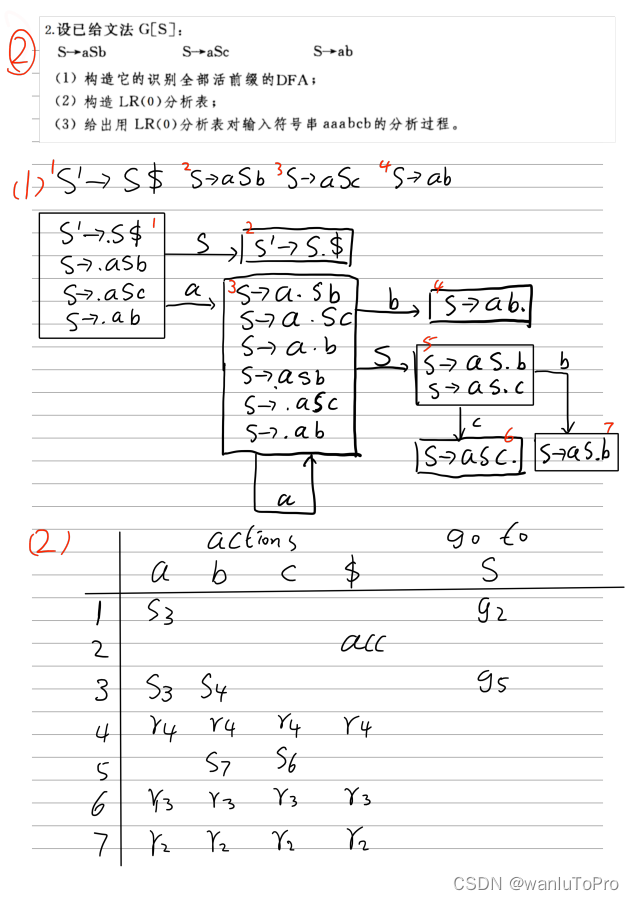 2.设已给文法 G[S]:
②
S→aSb S→aSc S→ab
(1) 构造它的识别全部活前缀的DFA;
(2) 构造 LR(0)分析表;
(3) 给出用 LR(0)分析表对输入符号串 aaabcb的分析过程。
(1) 1 S'→S$ 2 S→aSb 3 S→aSc 4 S→ab
1
S'→.S$
S→.aSb
S→.aSc
S→.ab
S
2
S'→S.$
a
3
S→a.Sb
S→a.Sc
S→a.b
S→.asb
S→.aSc
S→.ab
a
b
4
S→ab.
S
5
S→aS.b
S→aS.c
b
c
6
S→aSc.
7
S→aS.b
(2) actions go to
a b c $ S
1 S3 g2
2 acc
3 S3 S4 g5
4 r4 r4 r4 r4
5 S7 S6
6 r3 r3 r3 r3
7 r2 r2 r2 r2
CSDN @wanluToPro